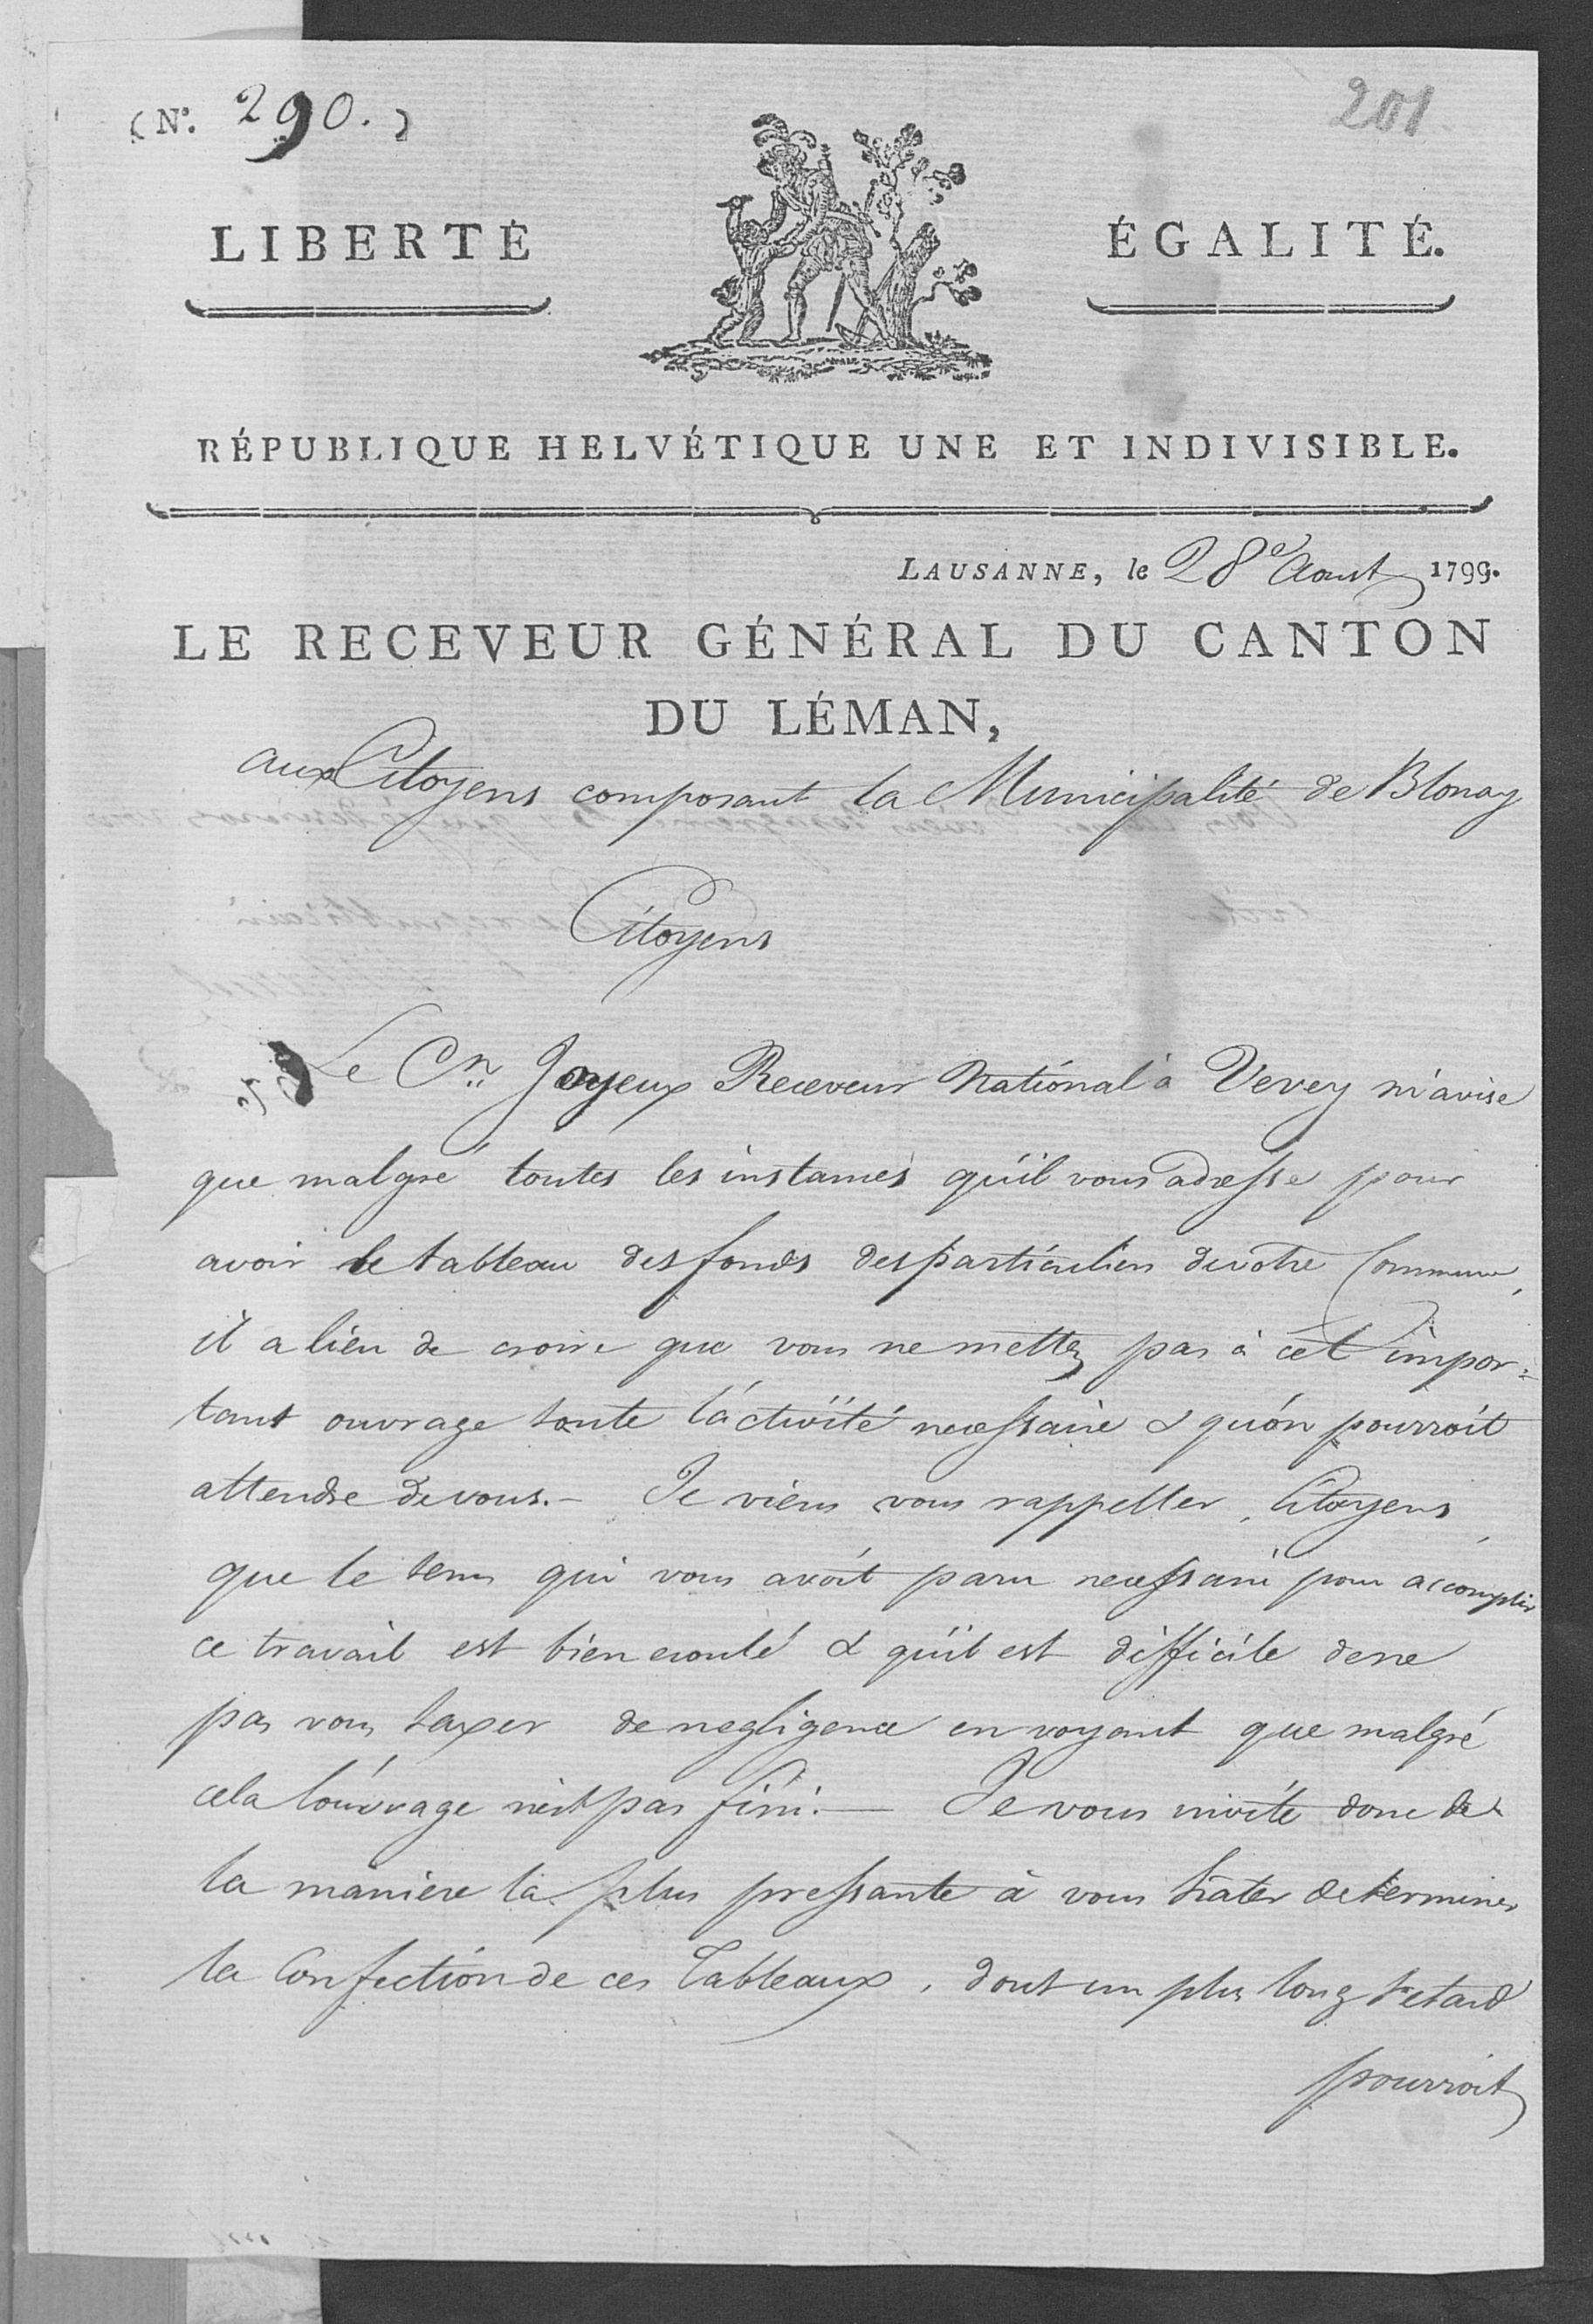 (N°. 290.)
201
LIBERTÉ
ÉGALITÉ.
RÉPUBLIQUE HELVÉTIQUE UNE ET INDIVISIBLE.
LAUSANNE, le 28e Aoust 1799.
LE RECEVEUR GÉNÉRAL DU CANTON
DU LÉMAN,
aux Citoyens composant la Municipalité de Blonay
Citoyens
Le Cn. Joyeux Receveur National à Vevey m'avise
que malgré toutes les instances qu'il vous adresse pour
avoir le tableau des fonds des particuliers de votre Commune,
il a lieu de croire que vous ne mettez pas à cet impor=
tant ouvrage toute l'activité necessaire & qu'on pourroit
attendre de vous. – Je viens vous rappeller, Citoyens,
que le tems qui vous avoit paru necessaire pour accomplir
ce travail est bien ecoulé & qu'il est difficile de ne
pas vous taxer de negligence en voyant que malgré
cela l'ouvrage n'est pas fini. — Je vous invite donc de
la manière la plus pressante à vous hater de terminer
la Confection de ces Tableaux, dont un plus long retard
pourroit